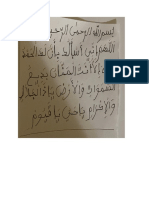 بسم الله الرحمن الرحيم
اللهم إني أسألك بأن لك الحمد
لا إله إلا أنت المنان بديع
السموات والأرض يا ذا الجلال
والإكرام يا حي يا قيوم